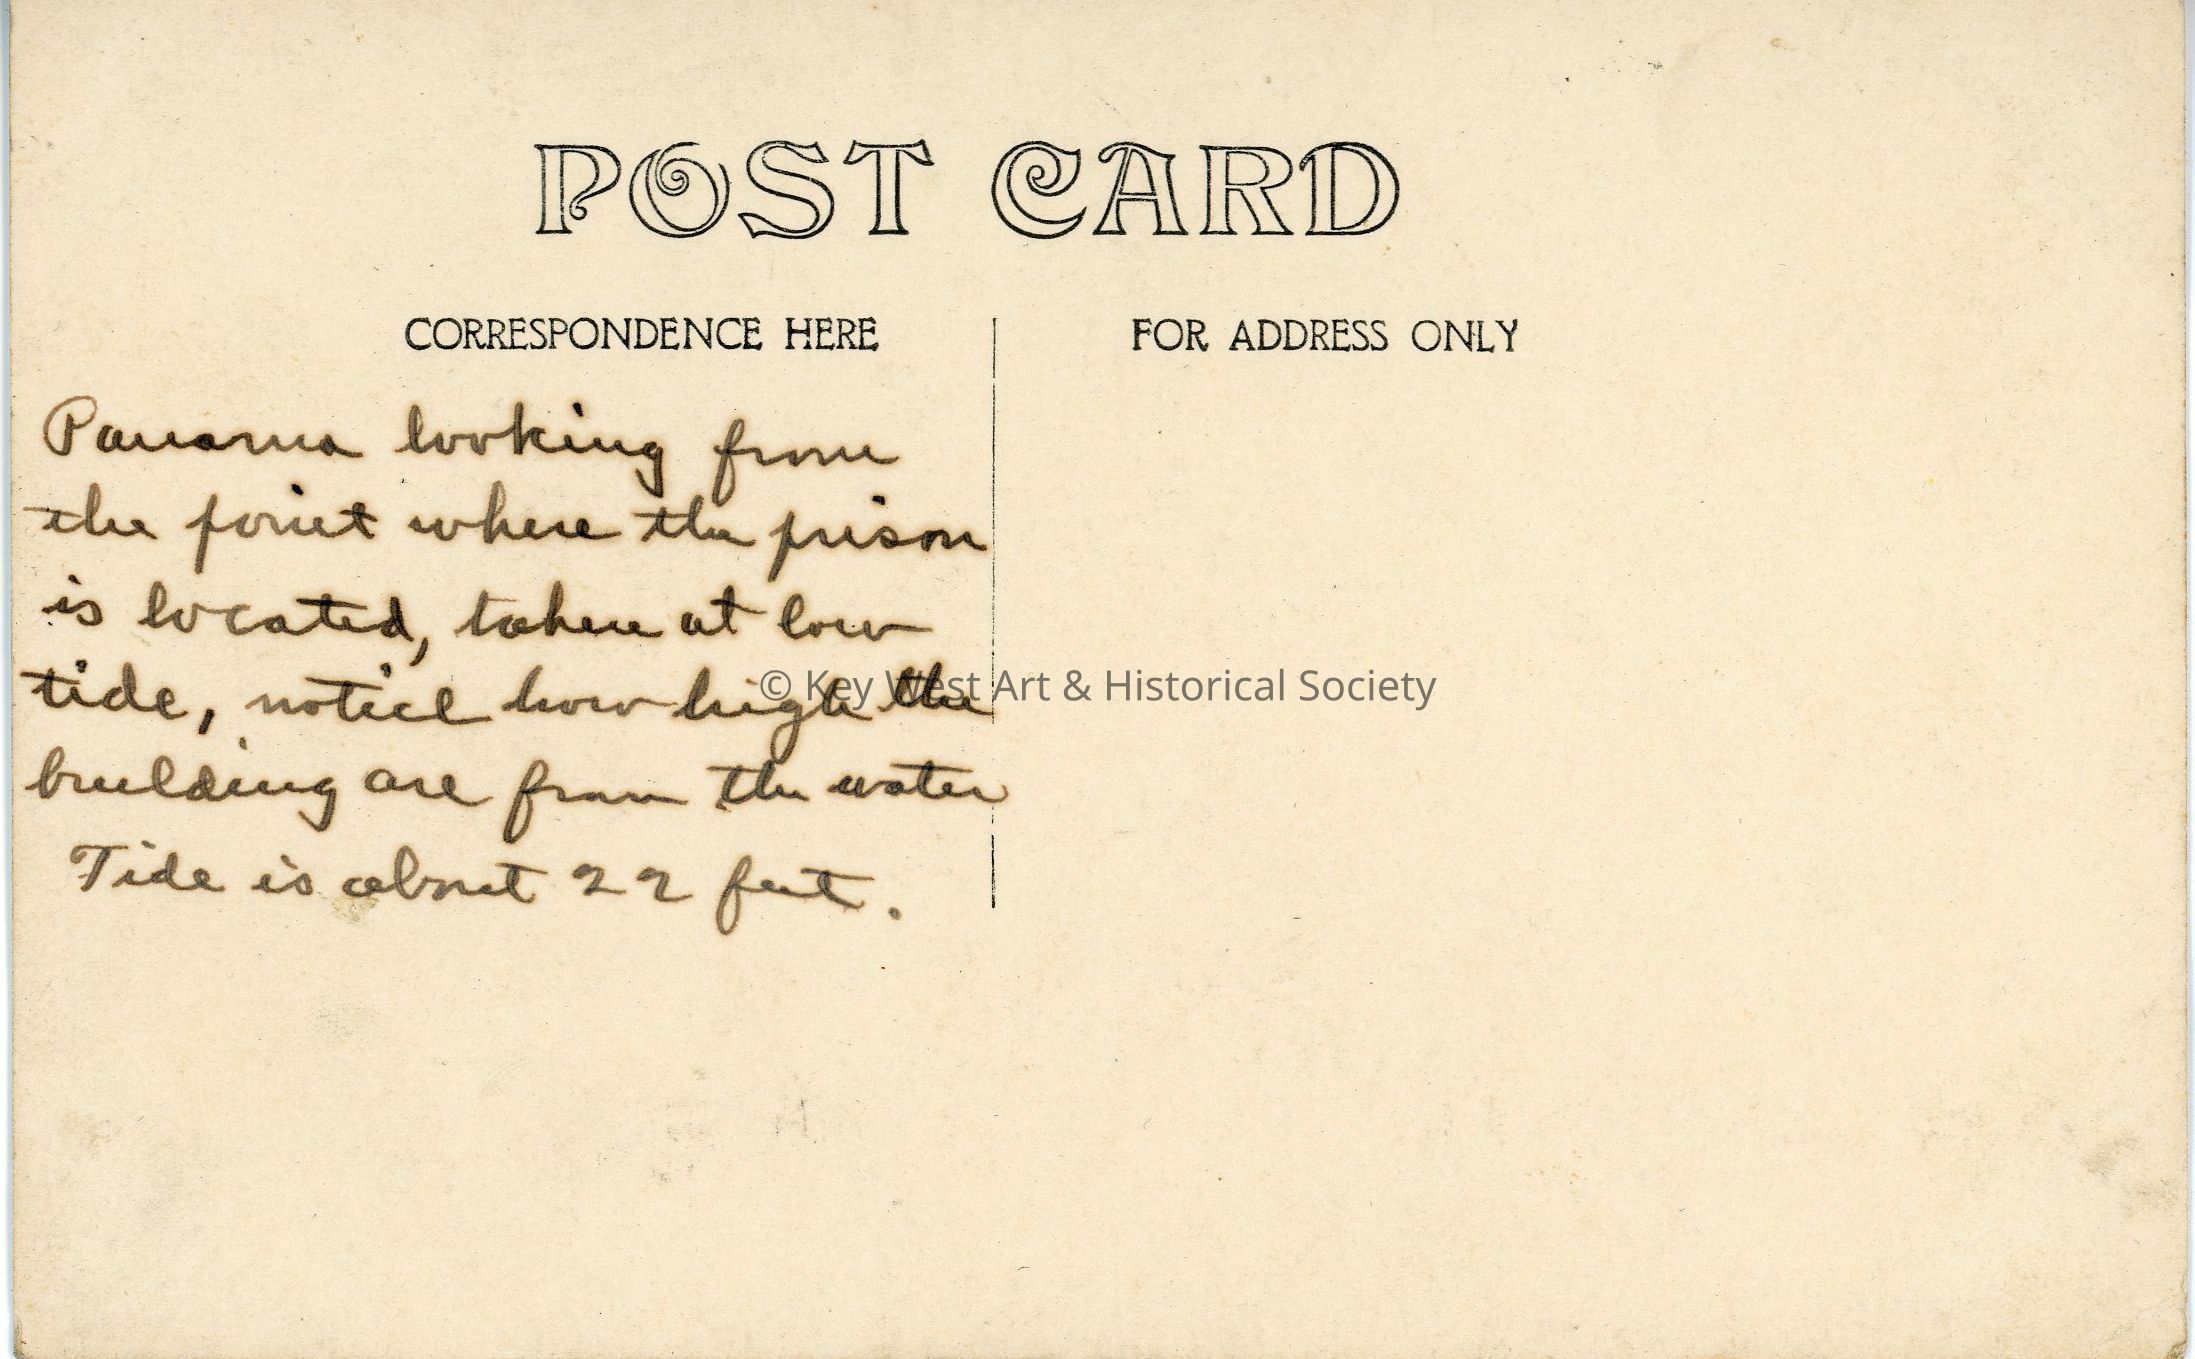 POST CARD
CORRESPONDENCE HERE
FOR ADDRESS ONLY
Panama looking from
the point where the prison
is located, taken at low
tide, notice how high the
building are from the water
Tide is about 22 feet.
© Key West Art & Historical Society